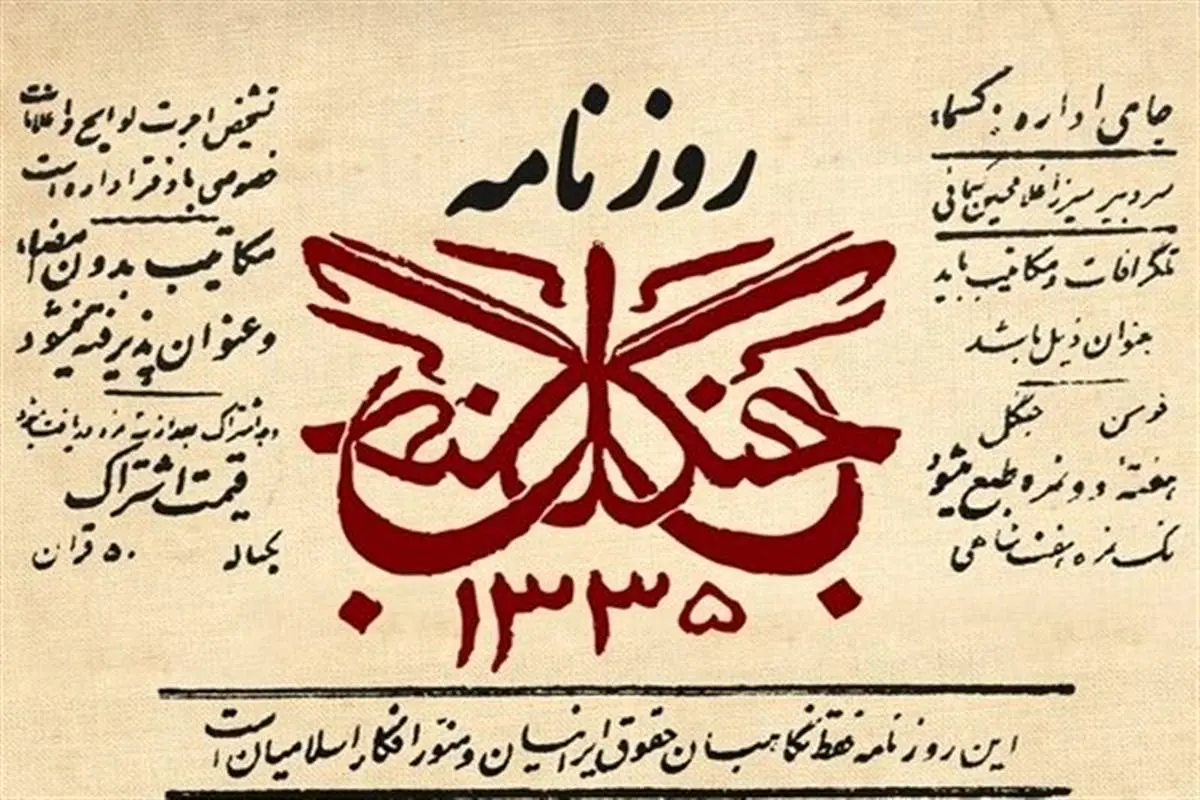 روزنامه
جنگل
۱۳۳۵
جای اداره: کسماء
سردبیر میرزا غلامحسین کسمائی
تلگرافات و مکاتیب باید
بعنوان ذیل باشد
فومن جنگل
هفتهٔ دو نمره طبع میشود
تک نمره هفت شاهی
تشخیص اجرت لوایح و اعلانات
خصوصی با دفتر اداره است
مکاتیب بدون امضاء
و عنوان پذیرفته نمیشود
وجه اشتراک بعد از سه نمره دریافت میشود
قیمت اشتراک
یکساله ۵۰ قران
این روزنامه فقط نگاهبان حقوق ایرانیان و منور افکار اسلامیان است